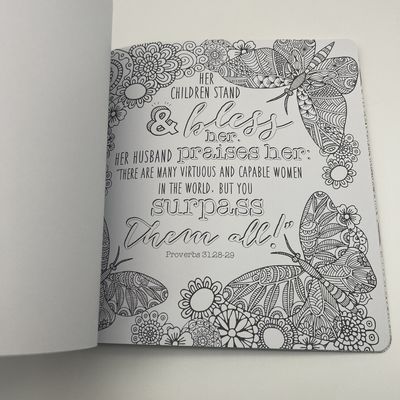 HER
CHILDREN STAND
& bless
her.
HER HUSBAND praises her:
"THERE ARE MANY VIRTUOUS AND CAPABLE WOMEN
IN THE WORLD, BUT YOU
surpass
them all!"
Proverbs 31:28-29